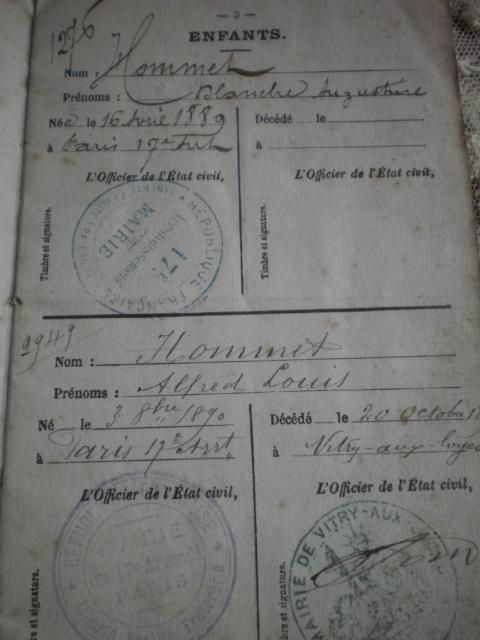 — 3 —
1276
ENFANTS.
Nom : Hommet
Prénoms : Blanche Augustine
Née le 16 Avril 1889
Décédé le
à Paris 17e Arrt
à
L'Officier de l'État civil,
L'Officier de l'État civil,
Timbre et signature.
Timbre et signature.
RÉPUBLIQUE FRANÇAISE
MAIRIE
17e
Arrondissement
2949
Nom : Hommet
Prénoms : Alfred Louis
Né le 3 8bre 1890
Décédé le 20 Octobre
à Paris 17e Arrt
à Vitry-aux-Loges
L'Officier de l'État civil,
L'Officier de l'État civil,
re et signature.
re et signature.
MAIRIE DE VITRY-AUX-